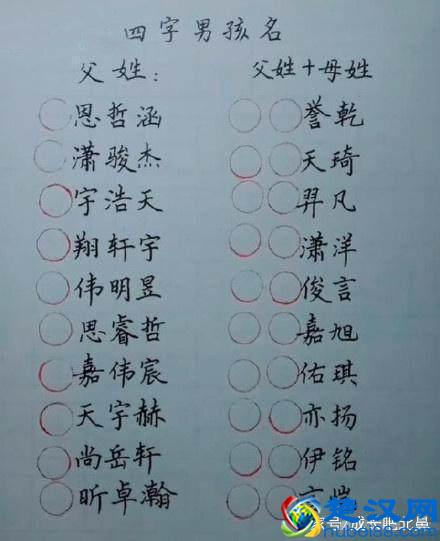 四字男孩名
父姓： 父姓+母姓
恩哲涵 誉乾
潇骏杰 天琦
宇浩天 羿凡
翔轩宇 潇洋
伟明昱 俊言
思睿哲 嘉旭
嘉伟宸 佑琪
天宇赫 亦扬
尚岳轩 伊铭
昕卓瀚
楚汉网
hubei88.com